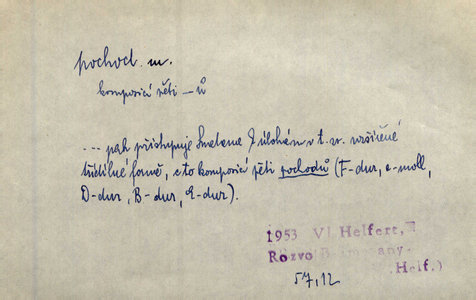 pochod m.
komposicí pěti – ů
... pak přistupuje Smetana k úlohám v t. zv. rozšířené
třídílné formě, a to komposicí pěti pochodů (F-dur, e-moll,
D-dur, B-dur, E-dur).
1953 Vl. Helfert,
Helf.)
57,12